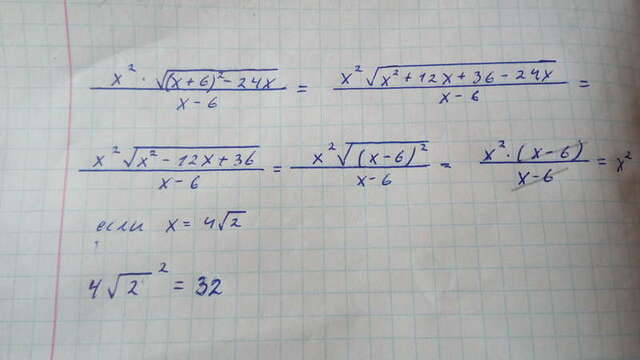 x² · √((x+6)² − 24x) / (x−6) = x² √(x² + 12x + 36 − 24x) / (x−6) =
x² √(x² − 12x + 36) / (x−6) = x² √((x−6)²) / (x−6) = x² · (x−6) / (x−6) = x²
если x = 4√2
4√2² = 32